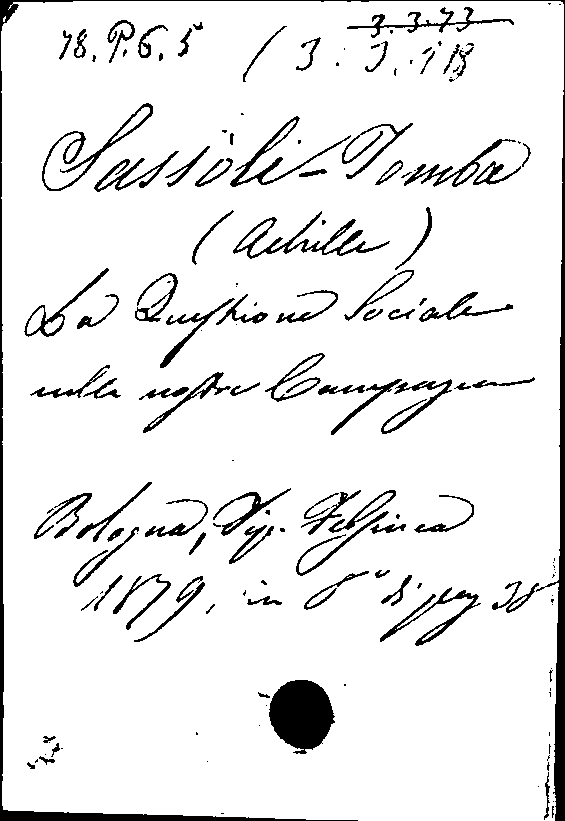 3.3.73
78.P.6.5 (3.3.118
Sassòli-Tomba
(Achille)
La Questione Sociale
nelle nostre Campagne
Bologna, Tip. Felsinea
1879, in 8° di pag 38